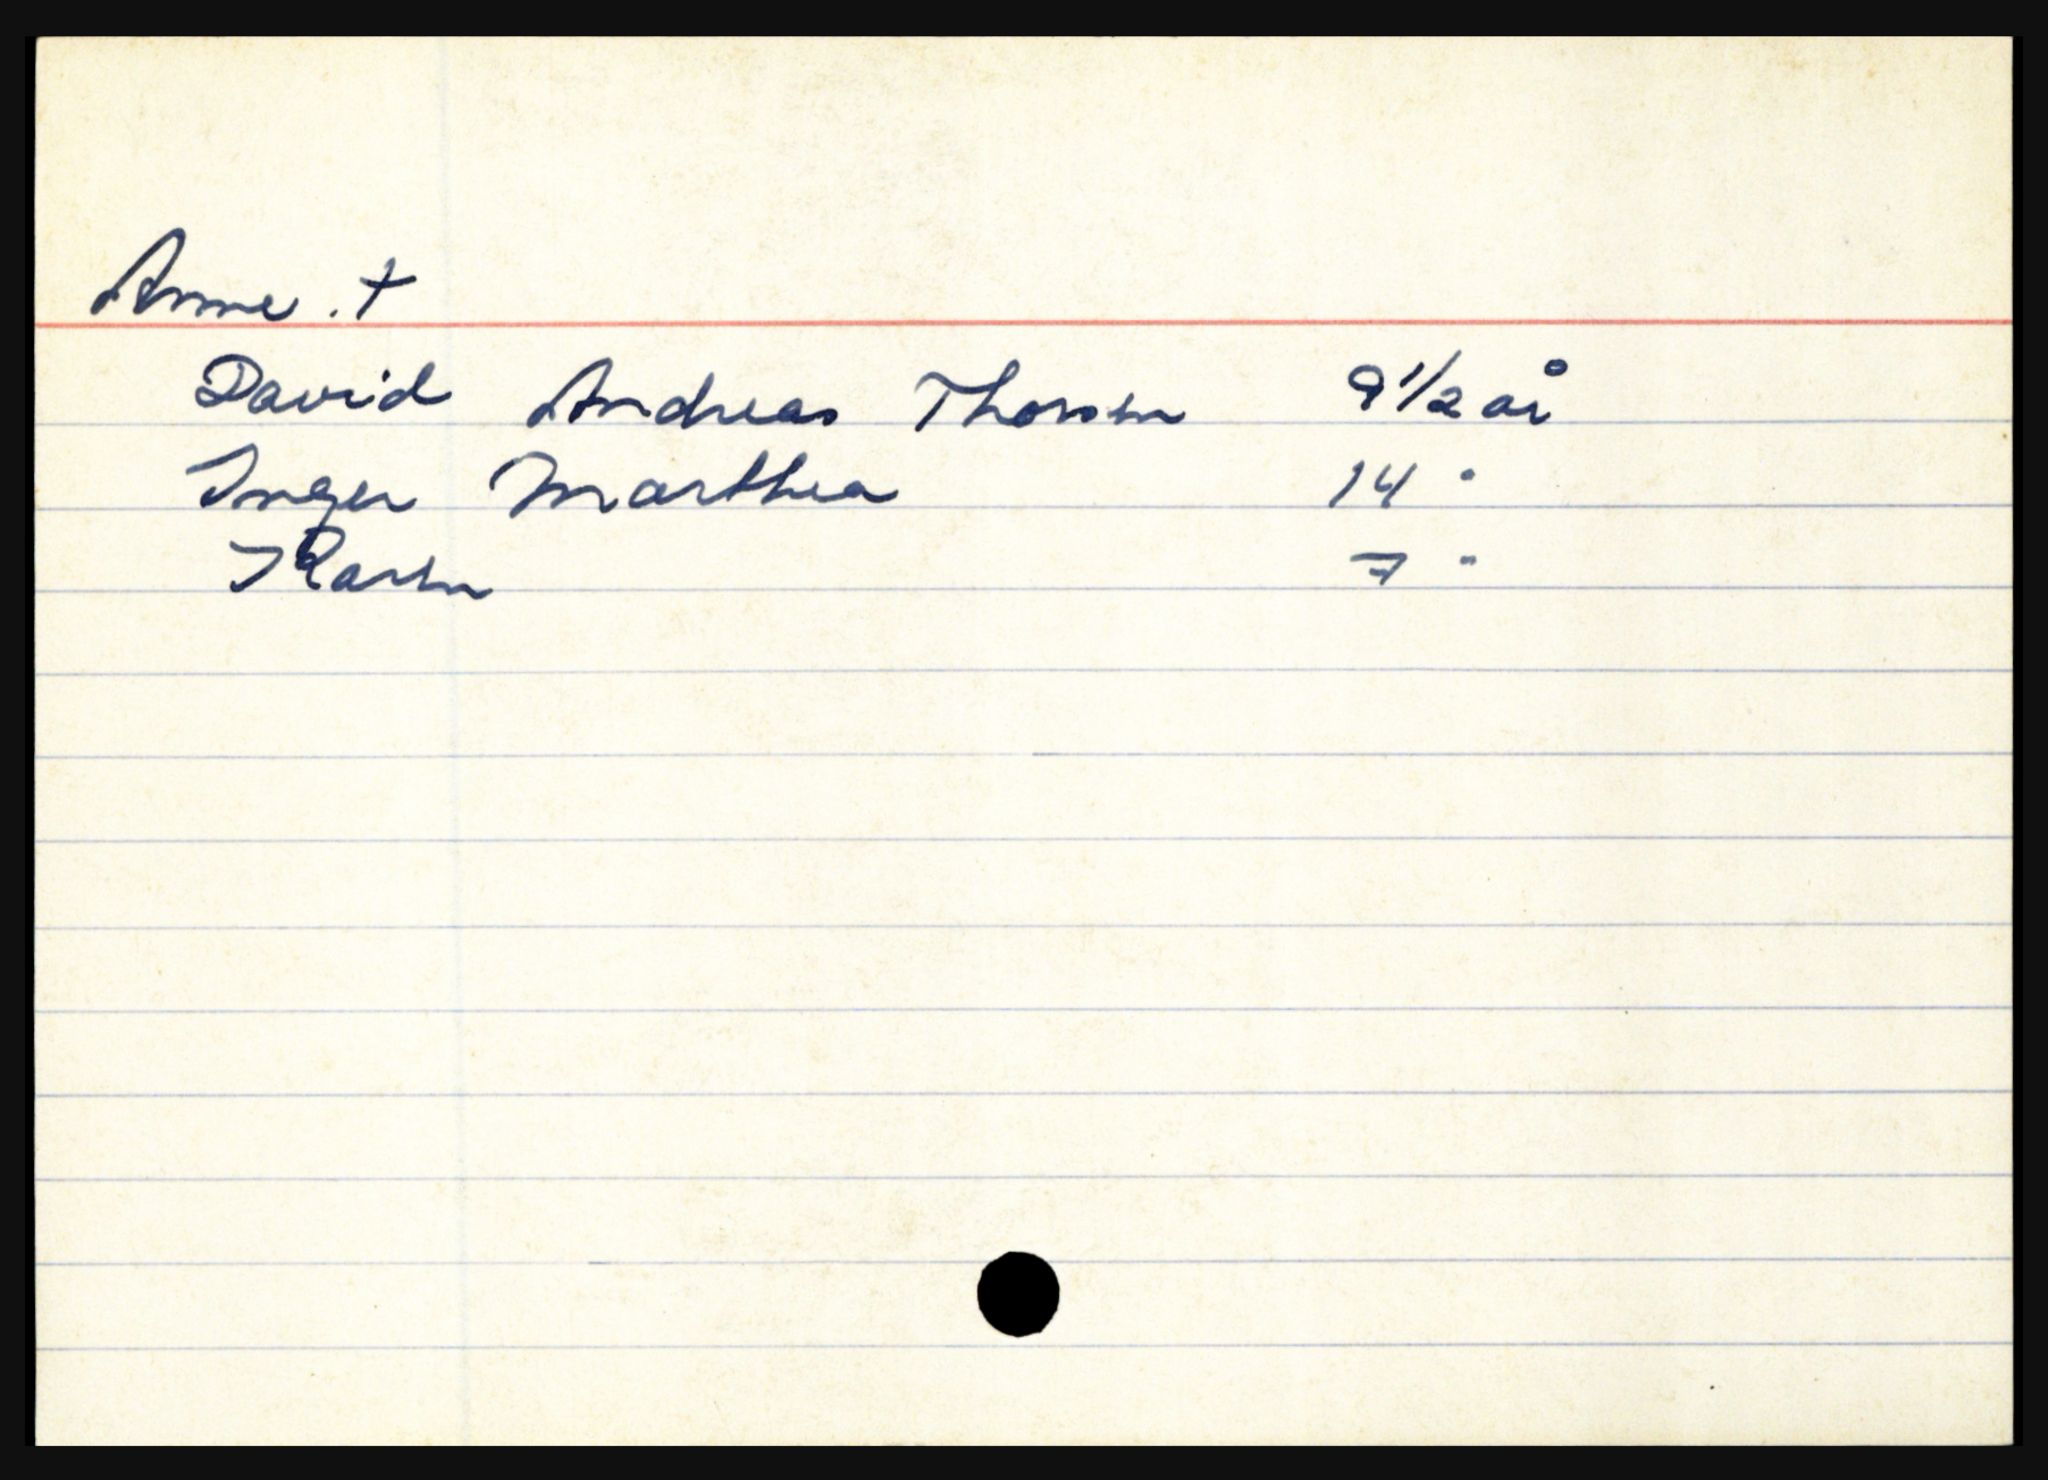 Anne . †
David Andreas Thorsen 9 1/2 år
Inger Marthea 14 "
Karen 7 "